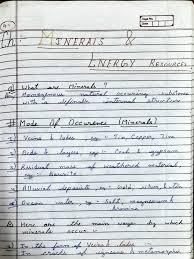 Ch: Minerals &
Energy Resources
Q) What are Minerals?
Homogenous natural occuring substance
with a definable internal structure
# Mode Of Occurence (Minerals)
1) Veins & lodes, eg:- Tin, Copper, Zinc
2) Beds & layers, eg:- Coal & gypsum
3) Residual mass of weathered material,
eg:- Bauxite
4) Alluvial deposits, eg:- Gold,
5) Ocean water, eg:- Salt, magnesium &
bromine
Here are the main ways by which
minerals occur:-
1) In the form of Veins & lodes
In cracks of igneous & metamorphic